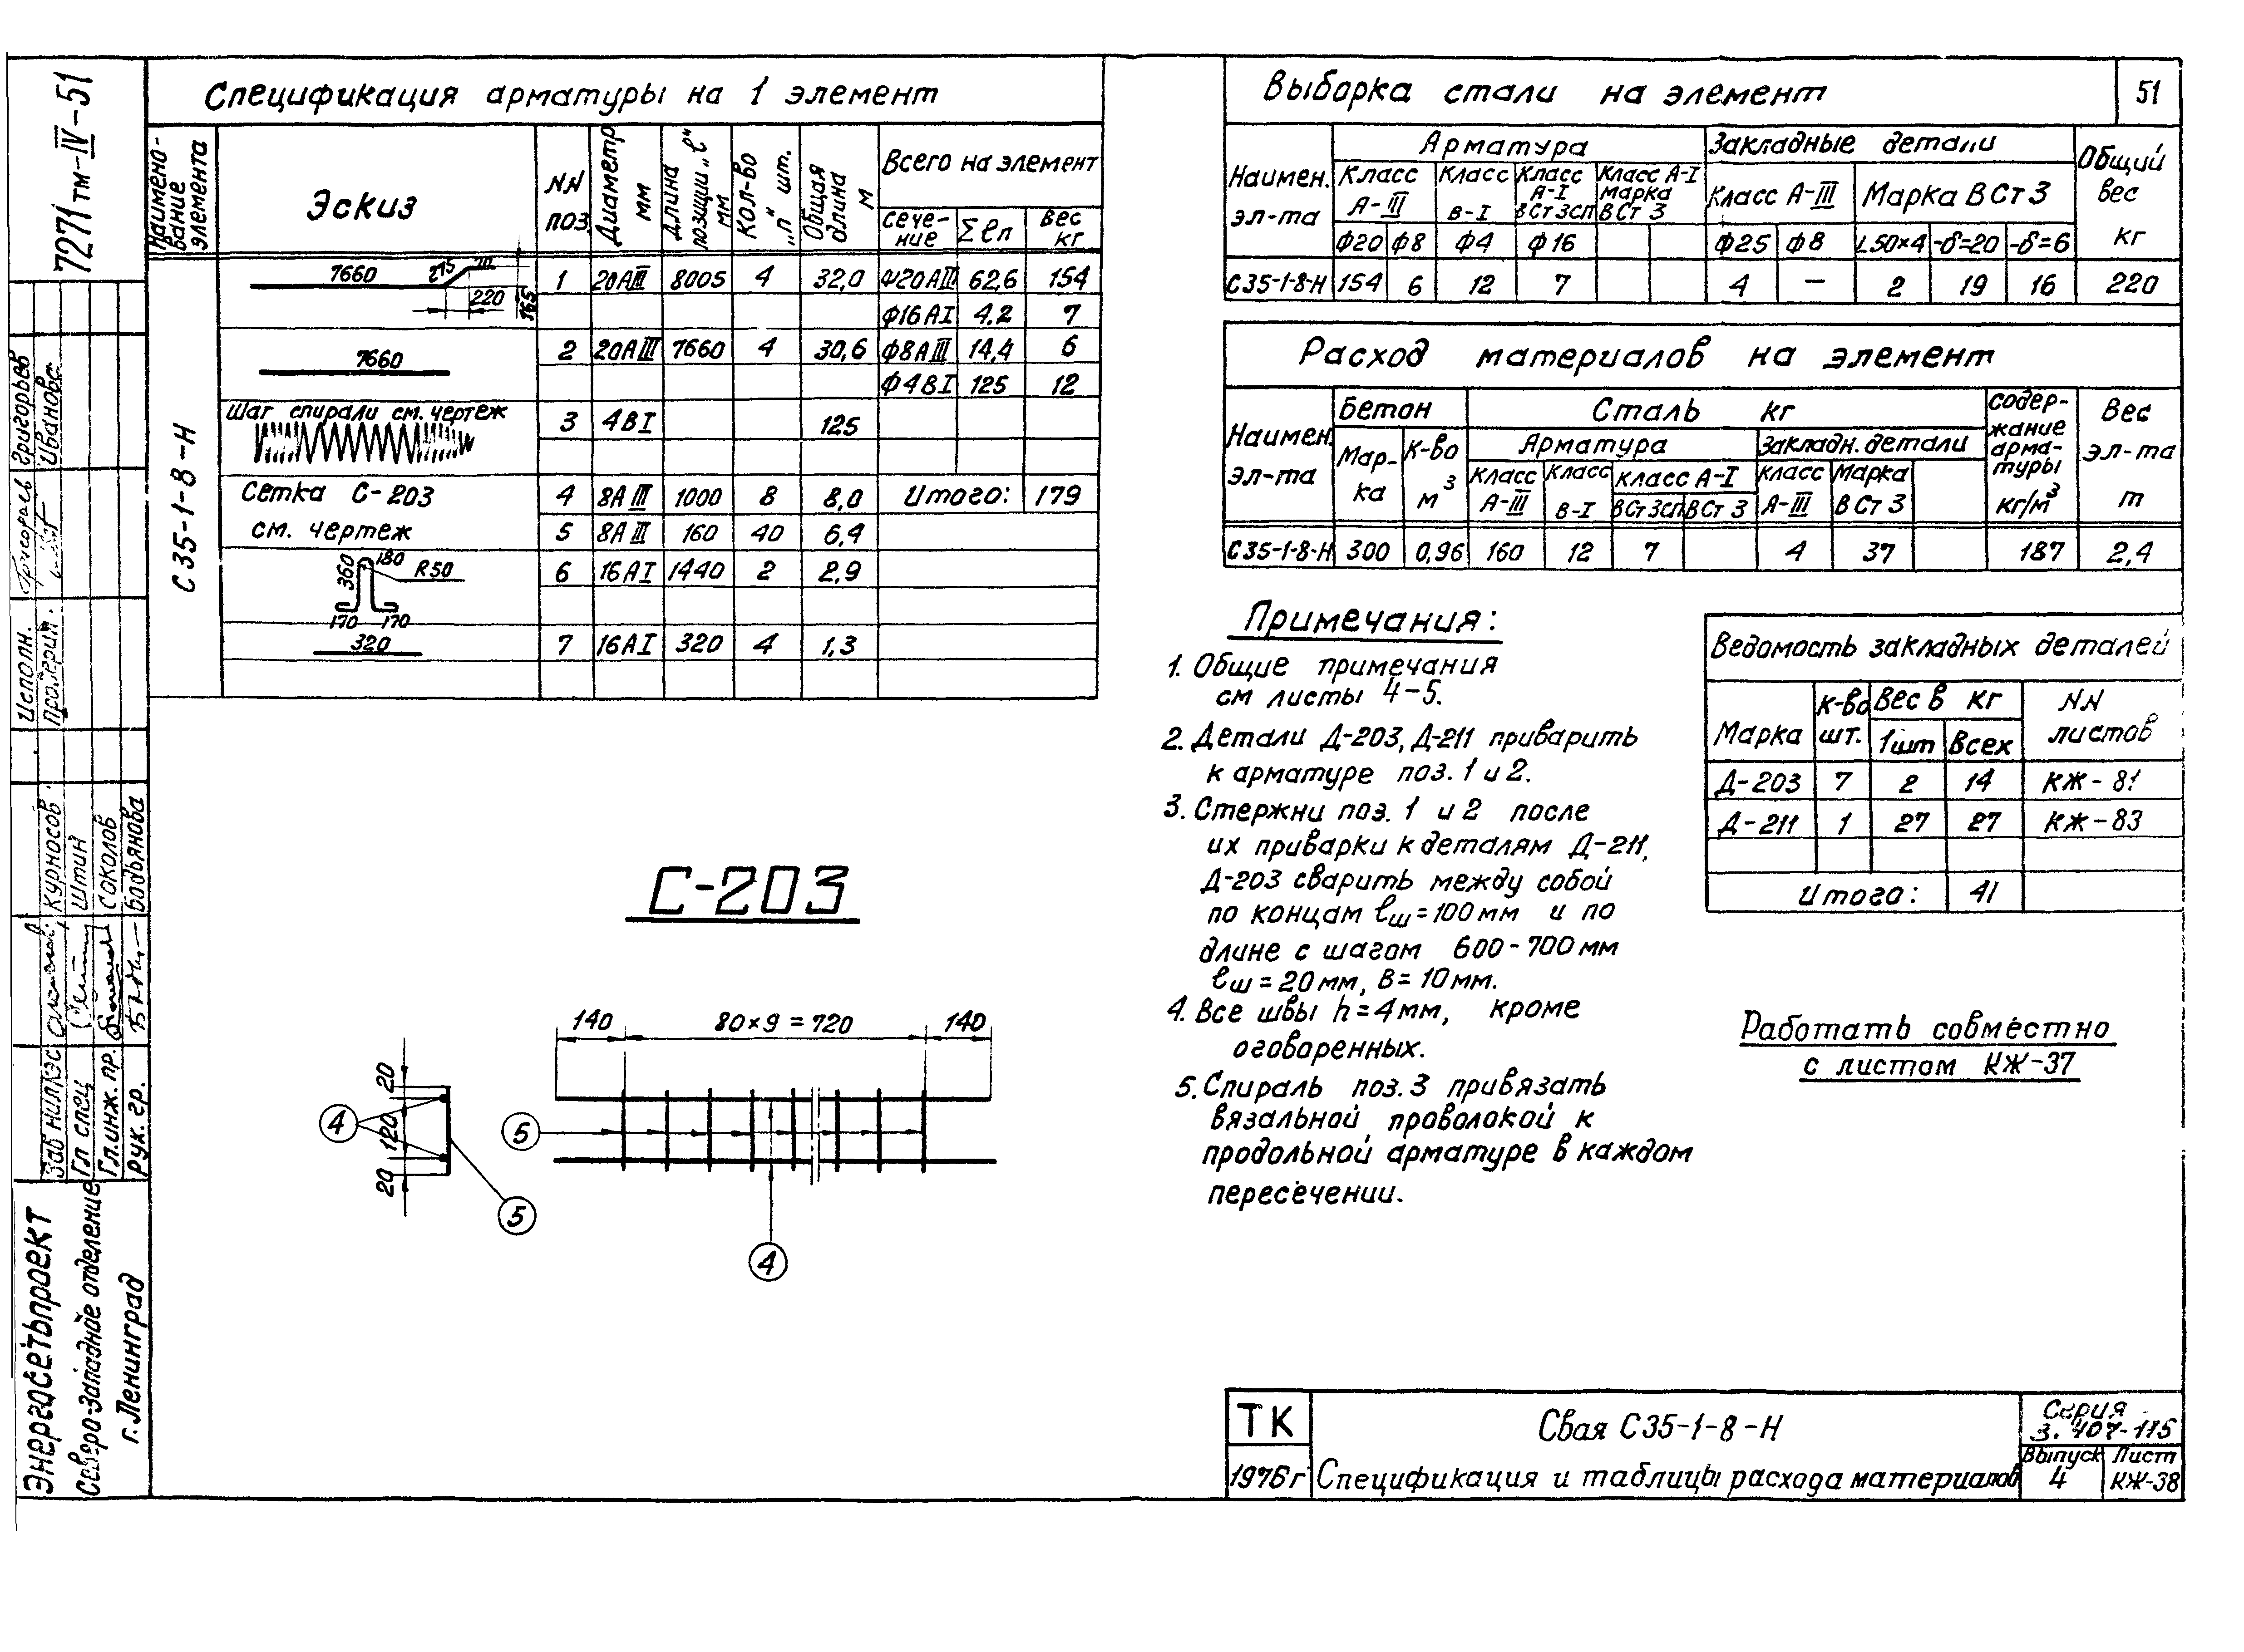 7271тм-IV-51
Спецификация арматуры на 1 элемент
Наимено-
вание
элемента
Эскиз
NN
поз
Диаметр
мм
Длина
позиции „ℓ"
мм
Кол-во
„п" шт.
Общая
длина
м
Всего на элемент
сече-
ние
Σℓп
вес
кг
С35-1-8-Н
7660 275 70 220 165
1 20АIII 8005 4 32,0 Ф20АIII 62,6 154
Ф16АI 4,2 7
7660
2 20АIII 7660 4 30,6 Ф8АIII 14,4 6
Ф4ВI 125 12
Шаг спирали см. чертеж
3 4ВI 125
Сетка С-203
см. чертеж
4 8АIII 1000 8 8,0 Итого: 179
5 8АIII 160 40 6,4
360 180 R50
170 170
6 16АI 1440 2 2,9
320
7 16АI 320 4 1,3
Выборка стали на элемент
51
Наимен.
эл-та
Арматура
Закладные детали
Общий
вес
кг
Класс
А-III
Класс
В-I
Класс
А-I
ВСт3сп
Класс А-I
марка
ВСт3
Класс А-III
Марка ВСт3
Ф20 Ф8 Ф4 Ф16 Ф25 Ф8 L50×4 -δ=20 -δ=6
С35-1-8-Н 154 6 12 7 4 — 2 19 16 220
Расход материалов на элемент
Наимен.
эл-та
Бетон
Сталь кг
содер-
жание
арма-
туры
кг/м³
Вес
эл-та
т
Мар-
ка
К-во
м³
Арматура
Закладн. детали
Класс
А-III
Класс
В-I
Класс А-I
ВСт3сп ВСт3
Класс
А-III
Марка
ВСт3
С35-1-8-Н 300 0,96 160 12 7 4 37 187 2,4
Примечания:
1. Общие примечания
см листы 4-5.
2. Детали Д-203, Д-211 приварить
к арматуре поз. 1 и 2.
3. Стержни поз. 1 и 2 после
их приварки к деталям Д-211,
Д-203 сварить между собой
по концам ℓш=100мм и по
длине с шагом 600-700мм
ℓш=20мм, В=10мм.
4. Все швы h=4мм, кроме
оговоренных.
5. Спираль поз. 3 привязать
вязальной проволокой к
продольной арматуре в каждом
пересечении.
Ведомость закладных деталей
Марка
к-во
шт.
Вес в кг
1шт Всех
NN
листов
Д-203 7 2 14 КЖ-81
Д-211 1 27 27 КЖ-83
Итого: 41
Работать совместно
с листом КЖ-37
С-203
140 80×9=720 140
20 120 20
4 5
5 4
ТК
1976г
Свая С35-1-8-Н
Спецификация и таблицы расхода материалов
Серия
3.407-115
Выпуск
4
Лист
КЖ-38
Энергосетьпроект
Северо-Западное отделение
г. Ленинград
Зав НИЛКЭС Курносов
Гл спец Штин
Гл. инж. пр. Соколов
Рук. гр.
Исполн. Григорьев
Проверил Иванова